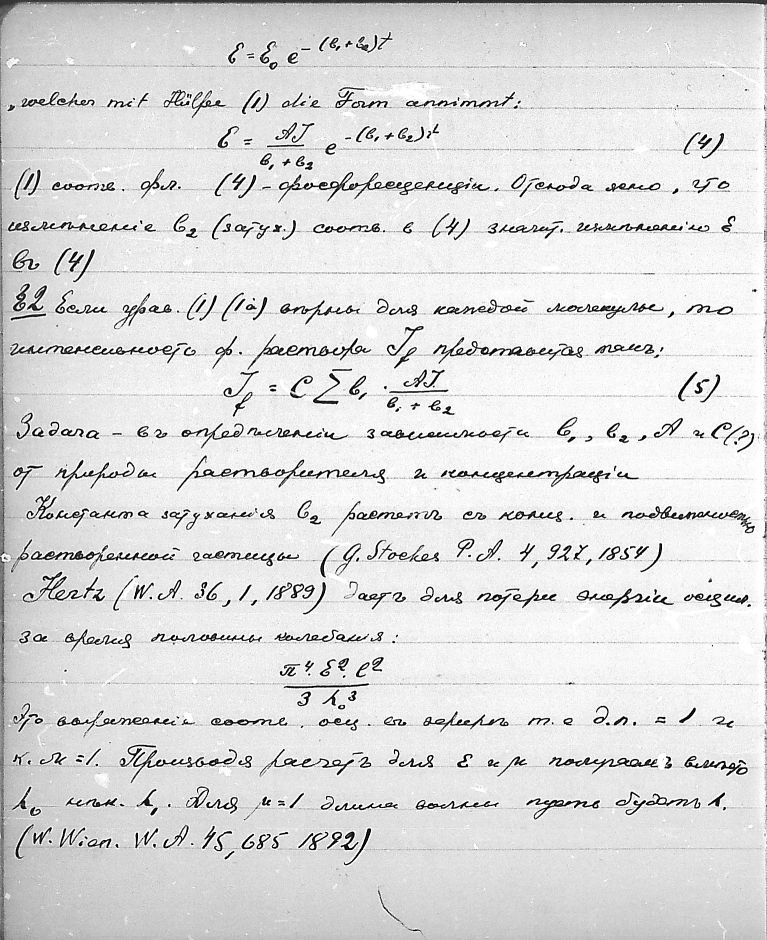 ℰ = ℰ₀ e^{-(b₁+b₂)t}
, welcher mit Hülfe (1) die Form annimmt:
ℰ = AJ/(b₁+b₂) e^{-(b₁+b₂)t} (4)
(1) соотв. фл. (4) – фосфоресценціи. Отсюда ясно, что
измѣненіе b₂ (затух.) соотв. в (4) значит. измѣненію ℰ
въ (4)
§2 Если урав. (1) (1a) вѣрны для каждой молекулы, то
интенсивность ф. раствора J_f представится так:
J_f = C Σ b₁ · AJ/(b₁+b₂) (5)
Задача – въ опредѣленіи зависимости b₁, b₂, A и C(?)
от природы растворителя и концентраціи
Константа затуханія b₂ растетъ съ конц. и подвижностью
растворенной частицы (G. Stockes P.A. 4, 927, 1854)
Hertz (W.A. 36, 1, 1889) даетъ для потери энергіи осцил.
за время половины колебанія:
π⁴·ℰ²·l²/(3 λ₀³)
Это выраженіе соотв. осц. въ эфирѣ т.е д.п. = 1 и
к.м = 1. Производя расчетъ для ℰ и μ получаемъ вмѣсто
λ₀ нѣк. λ₁. Для μ=1 длина волны пусть будетъ λ.
(W. Wien. W.A. 45, 685 1892)